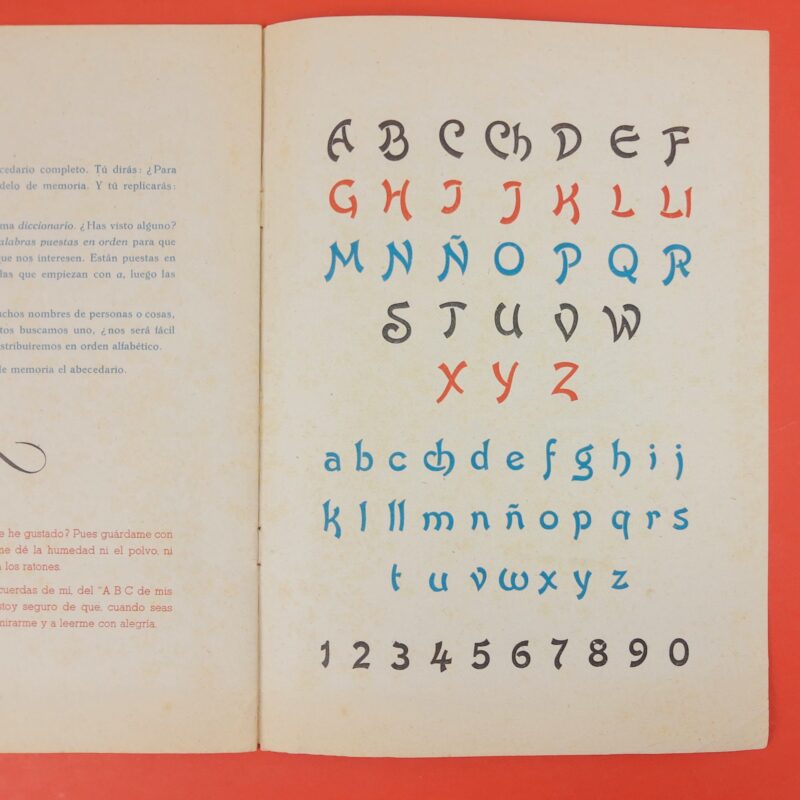 cedario completo. Tú dirás: ¿Para
delo de memoria. Y tú replicarás:
ma diccionario. ¿Has visto alguno?
alabras puestas en orden para que
que nos interesen. Están puestas en
las que empiezan con a, luego las
uchos nombres de personas o cosas,
tos buscamos uno, ¿nos será fácil
stribuiremos en orden alfabético.
de memoria el abecedario.
e he gustado? Pues guárdame con
me dé la humedad ni el polvo, ni
los ratones.
cuerdas de mí, del "A B C de mis
stoy seguro de que, cuando seas
mirarme y a leerme con alegría.
A B C Ch D E F
G H I J K L Ll
M N Ñ O P Q R
S T U V W
X Y Z
a b c ch d e f g h i j
k l ll m n ñ o p q r s
t u v w x y z
1 2 3 4 5 6 7 8 9 0